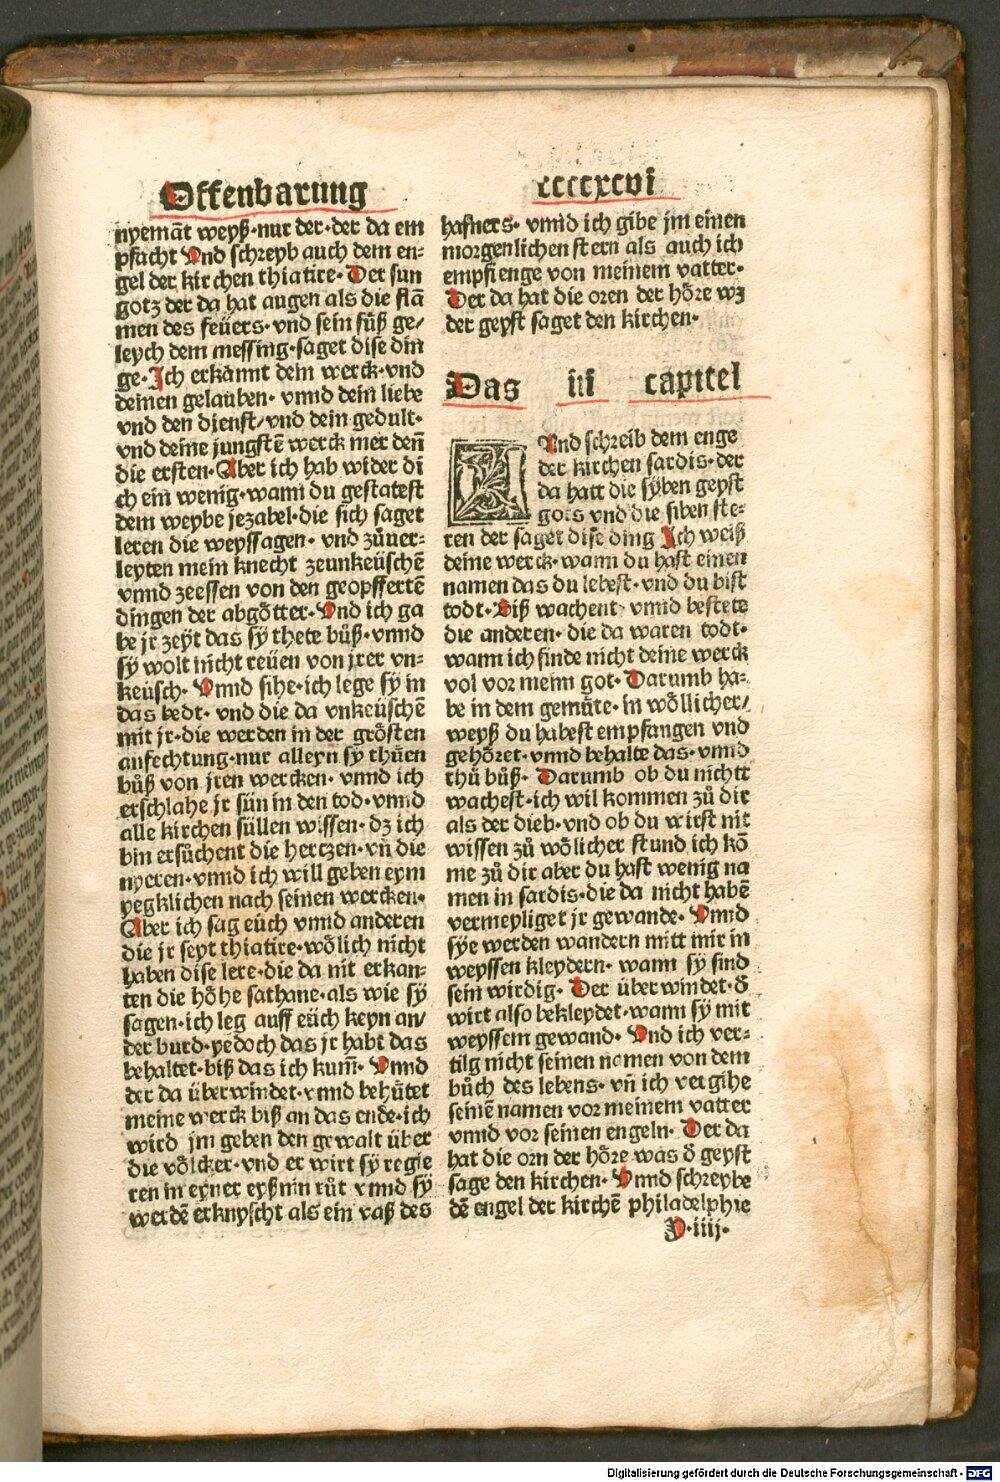 Offenbarung
ccccxcvi
nyemāt weyß·nur der·der da em
pfacht Vnd schreyb auch dem en⸗
gel der kirchen thiatire·Der sun
gotz der da hat augen als die flā
men des feüers·vnd sein fűß ge/
leych dem messing·saget dise din
ge·Ich erkannt dein werck·vnd
deinen gelauben·vnnd dein liebe
vnd den dienst/vnd dein gedult·
vnd deine jungstē werck mer deñ
die ersten·Aber ich hab wider di
ch ein wenig·wann du gestatest
dem weybe jezabel·die sich saget
leren die weyssagen·vnd zůuer⸗
leyten mein knecht zeunkeüschē
vnnd zeessen von den geopffertē
dingen der abgötter·Vnd ich ga
be jr zeyt das sy thete bůß·vnnd
sy wolt nicht reüen von jrer vn⸗
keüsch·Vnnd sihe·ich lege sy in
das bedt·vnd die da vnkeüschē
mit jr·die werden in der grösten
anfechtung·nur alleyn sy thüen
bůß von jren wercken·vnnd ich
erschlahe jr sün in den tod·vnnd
alle kirchen süllen wissen·dz ich
bin ersůchent die hertzen·vñ die
nyeren·vnnd ich will geben eym
yegklichen nach seinen wercken·
Aber ich sag eüch vnnd anderen
die jr seyt thiatire·wölich nicht
haben dise lere·die da nit erkan⸗
ten die höhe sathane·als wie sy
sagen·ich leg auff eüch keyn an/
der burd·yedoch das jr habt das
behaltet·biß das ich kum̄·Vnnd
der da überwindet·vnnd behűtet
meine werck biß an das ende·ich
wird jm geben den gewalt über
die völcker·vnd er wirt sy regie
ren in eyner eyßnin růt vnnd sy
werdē erknyscht als ein vaß des
hafners·vnnd ich gibe jm einen
morgenlichen stern als auch ich
empfienge von meinem vatter·
Der da hat die oren der höre wz
der geyst saget den kirchen·
Das iii capitel
Vnd schreib dem enge
der kirchen sardis·der
da hatt die syben geyst
gots vnd die siben ste⸗
ren der saget dise ding Ich weiß
deine werck·wann du hast einen
namen das du lebest·vnd du bist
todt·Biß wachent·vnnd bestete
die anderen·die da waren todt·
wann ich finde nicht deine werck
vol vor meim got·Darumb ha⸗
be in dem gemüte·in wöllicher/
weyß du habest empfangen vnd
gehöret·vnnd behalte das·vnnd
thů bůß·Darumb ob du nichtt
wachest·ich wil kommen zů dir
als der dieb·vnd ob du wirst nit
wissen zů wölicher stund ich kō
me zů dir aber du hast wenig na
men in sardis·die da nicht habē
vermeyliget jr gewande·Vnnd
sye werden wandern mitt mir in
weyssen kleydern·wann sy sind
sein wirdig·Der überwindet·ď
wirt also bekleydet·wann sy mit
weyssem gewand·Vnd ich ver⸗
tilg nicht seinen namen von dem
bůch des lebens·vñ ich vergihe
seinē namen vor meinem vatter
vnnd vor seinen engeln·Der da
hat die orn der höre was ď geyst
sage den kirchen·Vnnd schreybe
dē engel der kirchē philadelphie
D·iiij·
Digitalisierung gefördert durch die Deutsche Forschungsgemeinschaft - DFG